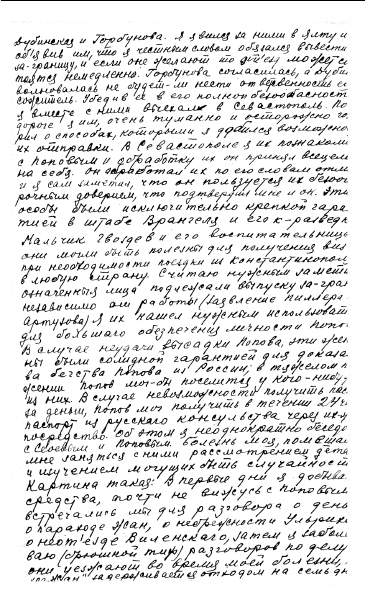 Дубинская и Горбунова. Я явился за ними в Ялту и
об'явил им, что я честным словом обязался вывести
за-границу, и если оне желают то от'езд может со
тоятся немедленно. Горбунова согласилась, а Дуби
волновалась не будет-ли нести ответственность её
сожитель. Убедив её в его полной безопасности
я вместе с ними выехал в Севастополь. По
дороге я им, очень туманно и осторожно го
рил о способах, которыми я добился возможно
их отправки. В Севастополе я их познаком
с Поповым и обработку их он принял всецело
на себя. Он обработал их по его словам отли
и я сам заметил, что он пользуется их безог
рочным доверием, что подтвердил мне и он. Эти
особы были исключительно крепкой гара
тией в штабе Врангеля и его к-разведк
Мальчик Гвоздев и его воспитательниц
они могли быть полезны для получения виз
при необходимости поездки из Константинопол
в любую страну. Считаю нужным заметь
означенныя лица подлежали выпуску за-гран
независимо от работы (заявление Пиллера
Артузова) я их нашел нужным использоват
для большаго обезпечения личности Попо
В случае неудачи высадки Попова, эти жен
ны были солидной гарантией для доказа
ва бегства Попова из России; в тяжелом п
жении Попов мог-бы поселится у кого-нибу
из них. В случае невозможности получить па
за деньги, Попов мог получить в течении 24 ч
паспорт из русскаго консульства через их-
посредство. Об этом я неоднократно беседо
с Своевым и Поповым. Болезнь моя, помешал
мне заняться с ними рассмотрением дета
и изучением могущих быть случайност
Картина такая: В первые дни я доставал
средства, почти не вижусь с Поповым
встречались мы для разговора о день
о пароходе Жан, о небрежности Ульриха
о неот'езде Виленскаго, затем я заболе
ваю (брюшной тиф) разговоров по делу
они уезжают во время моей болезни,
"Жан" задерживается отходом на семь дн